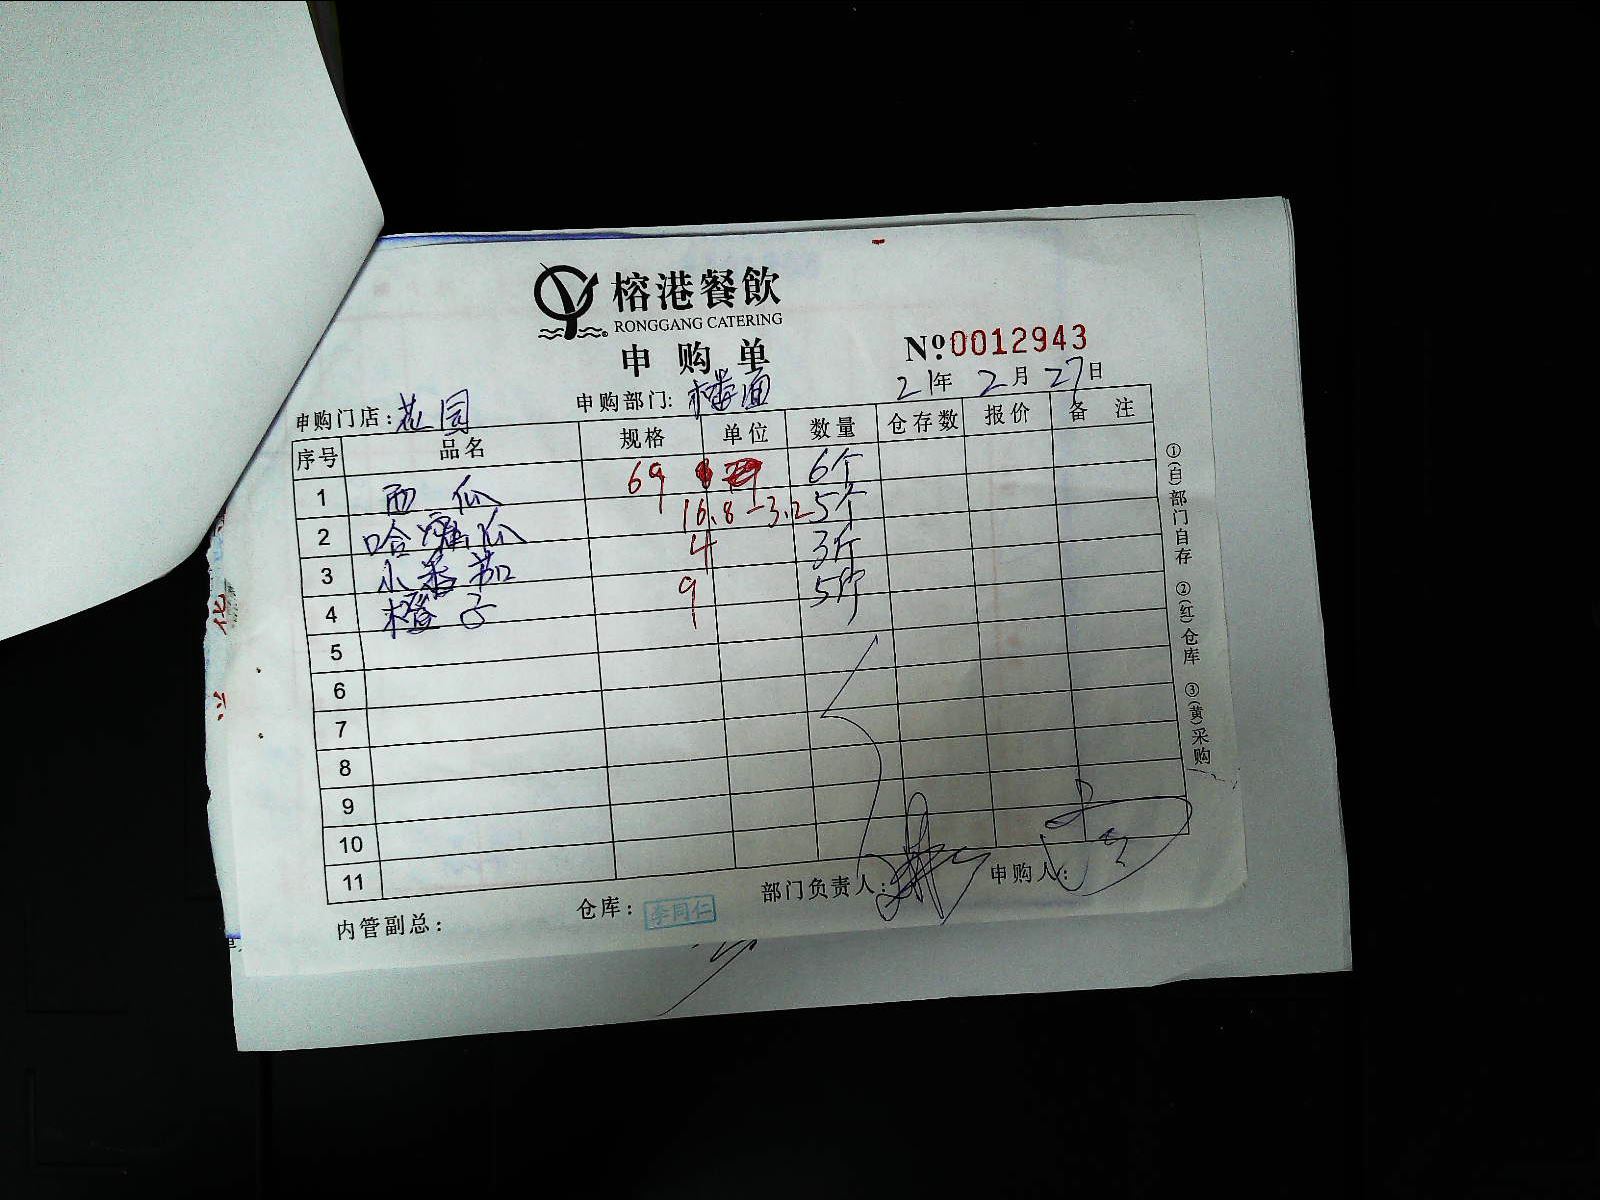 榕港餐飲
RONGGANG CATERING
申购单
№0012943
申购门店:花园 申购部门:楼面 21年2月27日
序号 品名 规格 单位 数量 仓存数 报价 备注
1 西瓜 69 6个
2 哈密瓜 16.8-3.2 5个
3 小番茄 4 3斤
4 橙子 9 5斤
5
6
7
8
9
10
11
内管副总: 仓库: 李同仁 部门负责人: 申购人:
①(白)部门自存 ②(红)仓库 ③(黄)采购